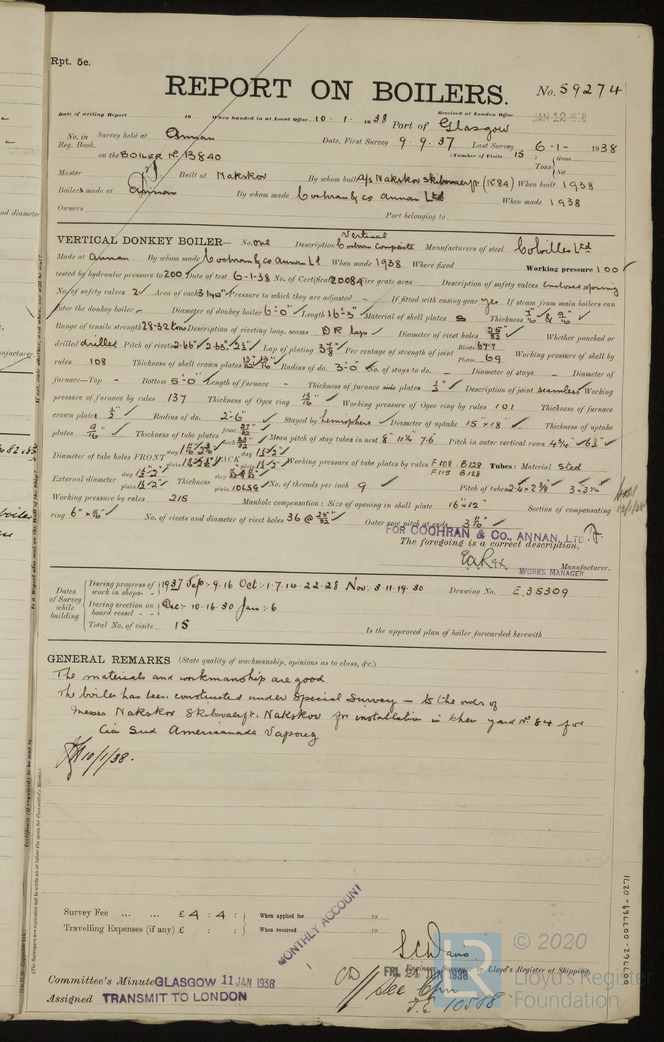 Rpt. 5e.
REPORT ON BOILERS.
No. 59274
Date of writing Report 19 When handed in at Local Office 10.1.1938 Port of Glasgow
Received at London Office
JAN 12 1938
No. in Reg. Book. Survey held at Annan Date, First Survey 9.9.37 Last Survey 6-1-1938
on the BOILER No. 13840 (Number of Visits 15) Tons Gross Net
Master Built at Nakskov By whom built A/s Nakskov Skibsvaerft (No 84) When built 1938
Boilers made at Annan By whom made Cochran & Co Annan Ltd When made 1938
Owners Port belonging to
VERTICAL DONKEY BOILER— No. one Description Vertical Cochran Composite Manufacturers of steel Colvilles Ltd
Made at Annan By whom made Cochran & Co Annan Ld When made 1938 Where fixed Working pressure 100
tested by hydraulic pressure to 200 Date of test 6-1-38 No. of Certificate 20084 Fire grate area Description of safety valves enclosed spring
No. of safety valves 2 Area of each 3.140 Pressure to which they are adjusted - If fitted with easing gear yes If steam from main boilers can
enter the donkey boiler - Diameter of donkey boiler 6'-0" Length 16'-3" Material of shell plates S Thickness 7/16" & 9/16"
Range of tensile strength 28-32 tons Description of riveting long. seams DR laps Diameter of rivet holes 25/32" Whether punched or
drilled drilled Pitch of rivets 2.66" 2.63" 2½" Lap of plating 3⅞ Per centage of strength of joint Rivets 67.7 Plates 69 Working pressure of shell by
rules 108 Thickness of shell crown plates Radius of do. 3'-0" No. of stays to do. - Diameter of stays - Diameter of
furnace—Top - Bottom 5'-0" Length of furnace - Thickness of furnace plates ½" Description of joint seamless Working
pressure of furnace by rules 137 Thickness of Ogee ring 13/16" Working pressure of Ogee ring by rules 101 Thickness of furnace
crown plates ½" Radius of do. 2'-6" Stayed by hemisphere Diameter of uptake 15" x 18" Thickness of uptake
plates 9/16" Thickness of tube plates Mean pitch of stay tubes in nest 8" 11¼ 7.6 Pitch in outer vertical rows 4¾" 6½"
Diameter of tube holes FRONT BACK Working pressure of tube plates by rules F 108 B 128 Tubes: Material Steel
F 115 B 128
External diameter Thickness 10LSG No. of threads per inch 9 Pitch of tubes
Working pressure by rules 215 Manhole compensation: Size of opening in shell plate 16" x 12" Section of compensating
ring No. of rivets and diameter of rivet holes 36 @ 25/32" Outer row pitch at ends
FOR COCHRAN & Co., ANNAN, LTD.
The foregoing is a correct description,
WORKS MANAGER Manufacturer.
Dates of Survey while building
During progress of work in shops - - 1937 Sep:- 9.16 Oct:- 1.7.14.22.28 Nov:- 3.11.19.30 Drawing No. E.35309
During erection on board vessel - - Dec:- 10.16.30 Jan:- 6
Total No. of visits 15 Is the approved plan of boiler forwarded herewith
GENERAL REMARKS (State quality of workmanship, opinions as to class, &c.)
The materials and workmanship are good
The boiler has been constructed under Special Survey — to the order of
Messrs Nakskov Skibsvaerft, Nakskov for installation in their yard No 84 for
Cia Sud Americanade Vaporez
10/1/38.
Survey Fee ... ... £ 4 : 4 : When applied for 19
Travelling Expenses (if any) £ : : When received 19
MONTHLY ACCOUNT
Engineer Surveyor to Lloyd's Register of Shipping.
FRI. 24 JUN 1938
Committee's Minute GLASGOW 11 JAN 1938
Assigned TRANSMIT TO LONDON
F.E. 10588
007762-007769-0271
© 2020
Lloyd's Register
Foundation